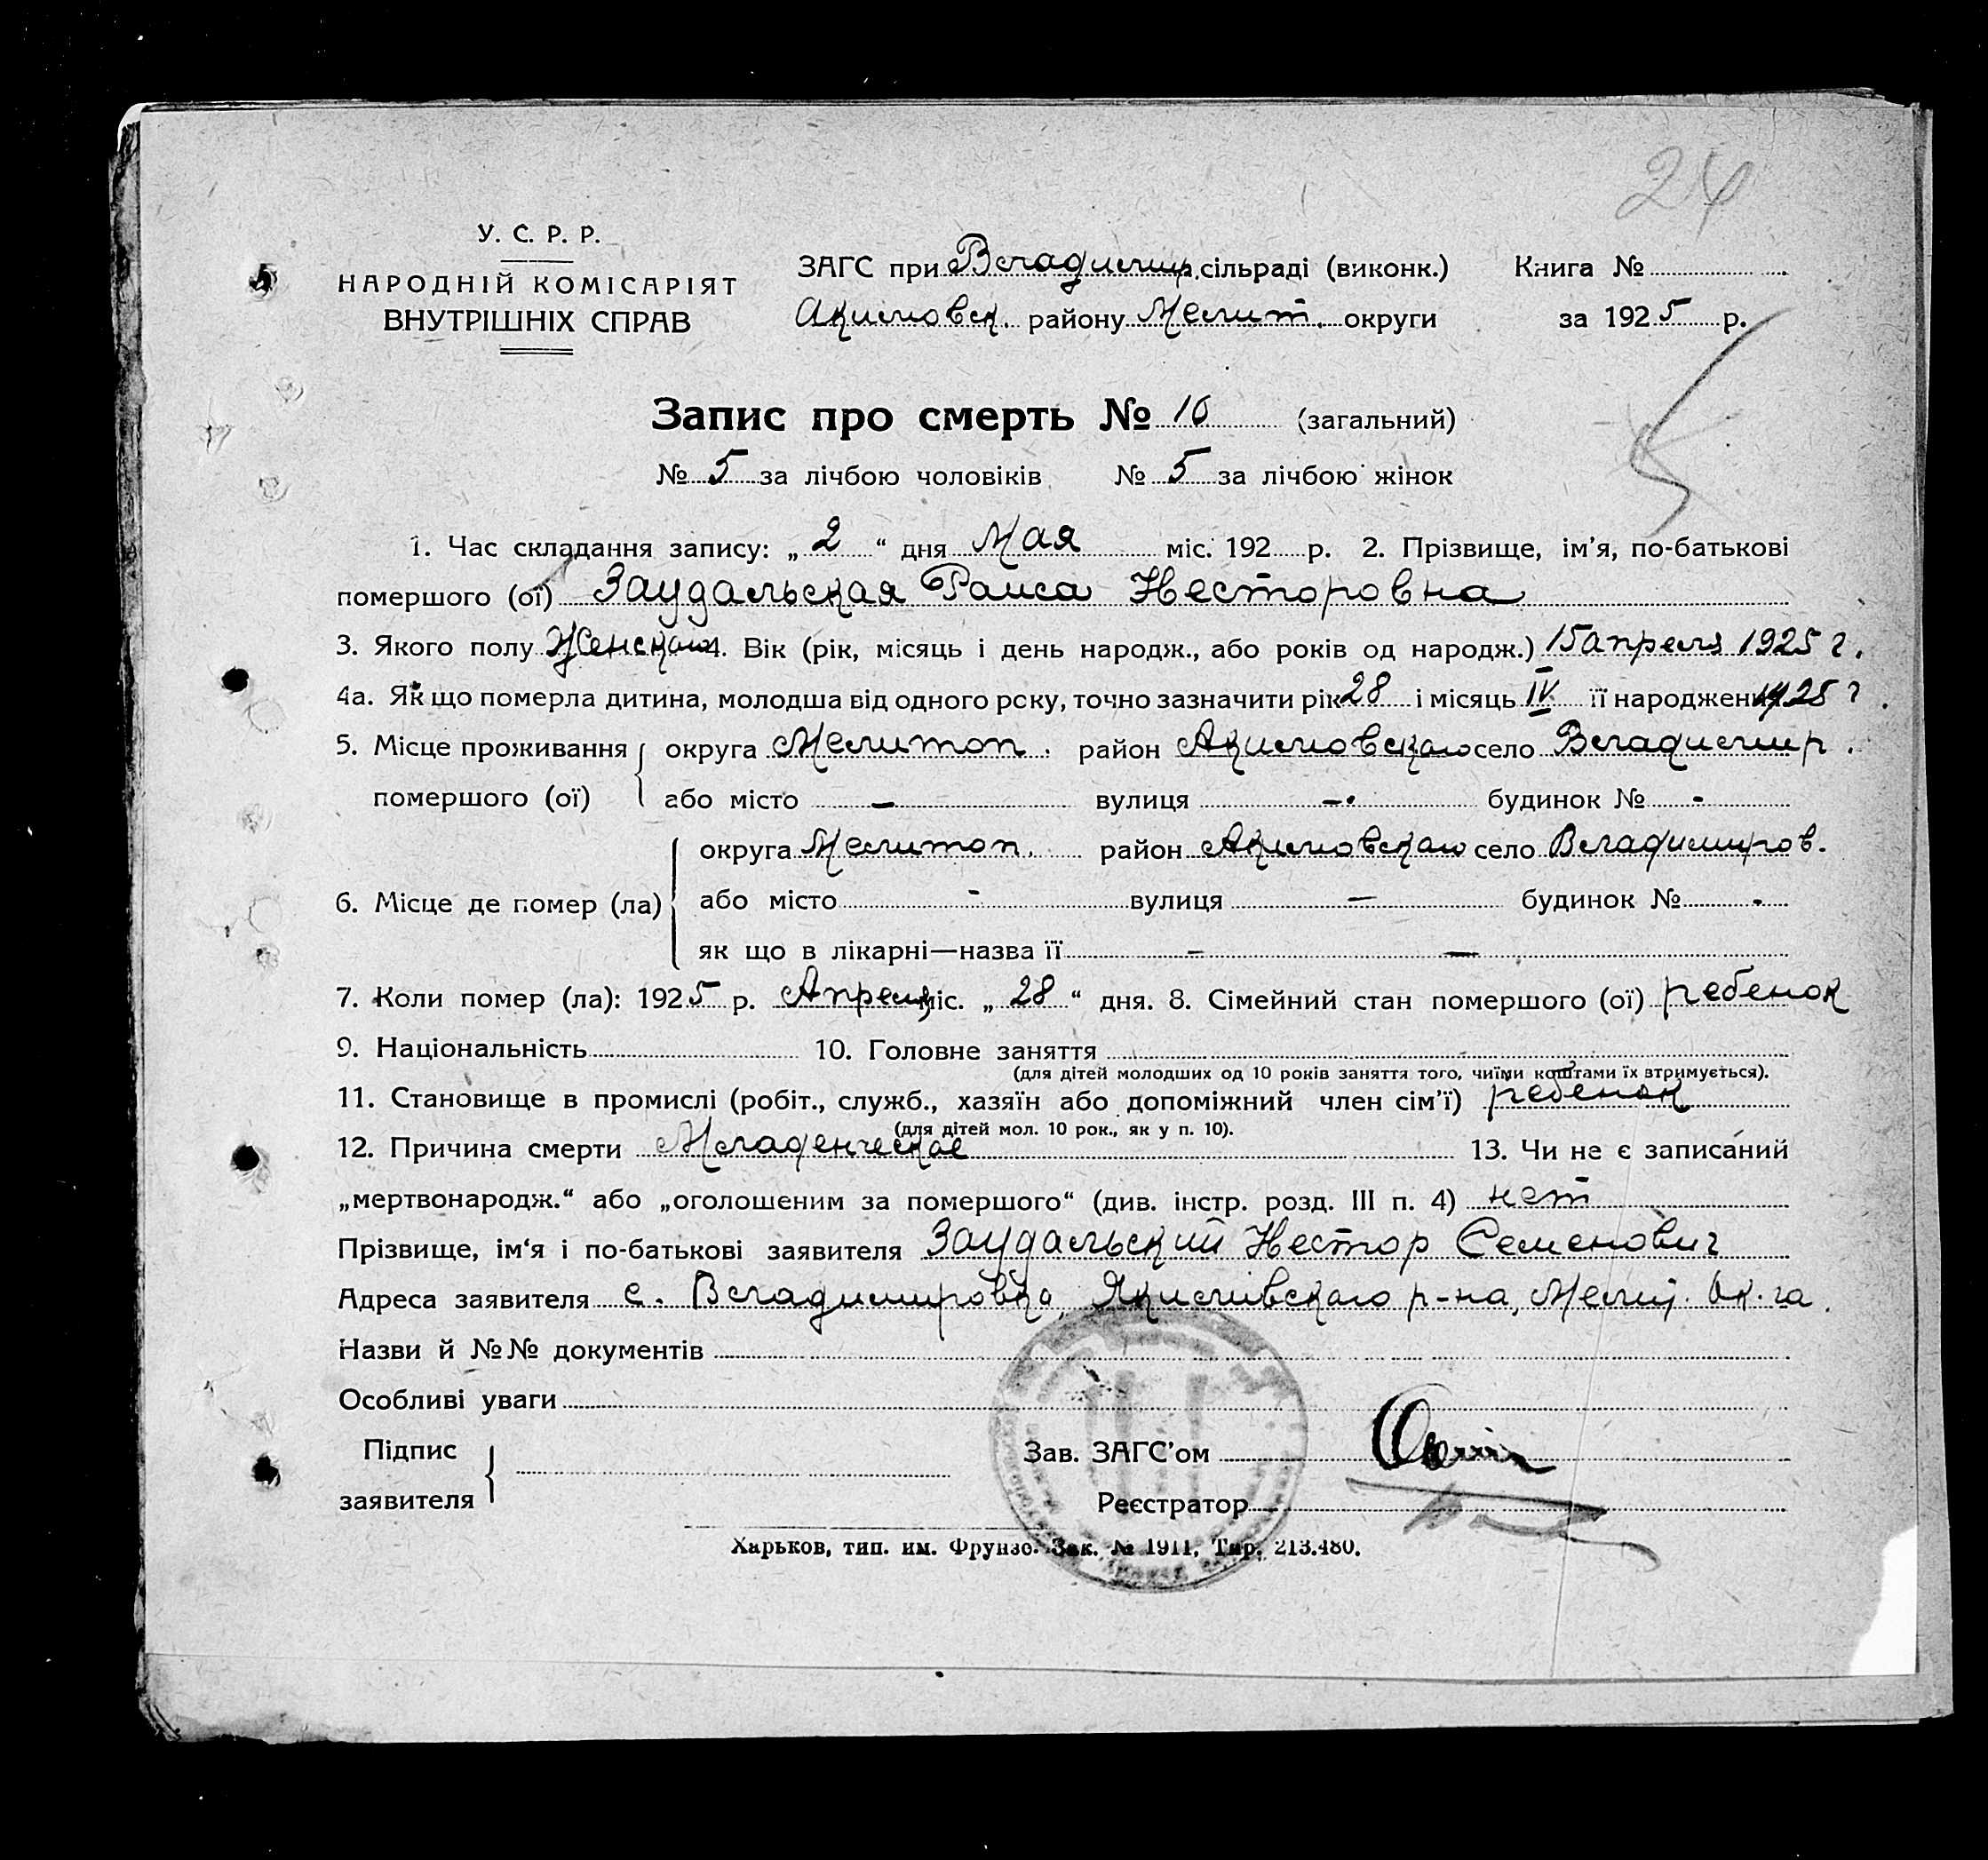 24
У. С. Р. Р.
НАРОДНІЙ КОМІСАРІЯТ
ВНУТРІШНІХ СПРАВ
ЗАГС при Владимир. сільраді (виконк.) Книга №
Акимовск. району Мелит. округи за 1925 р.
Запис про смерть № 10 (загальний)
№ 5 за лічбою чоловіків № 5 за лічбою жінок
1. Час складання запису: „ 2 “ дня Мая міс. 192 р. 2. Прізвище, ім'я, по-батькові
помершого (ої) Заудальская Раиса Несторовна
3. Якого полу Женского 4. Вік (рік, місяць і день народж., або років од народж.) 15 апреля 1925 г.
4а. Як що померла дитина, молодша від одного року, точно зазначити рік 28 і місяць IV її народження 1925 г.
5. Місце проживання округа Мелитоп. район Акимовского село Владимир.
помершого (ої) або місто — вулиця — будинок № -
округа Мелитоп. район Акимовского село Владимиров.
6. Місце де помер (ла) або місто - вулиця — будинок № -
як що в лікарні—назва її - —
7. Коли помер (ла): 1925 р. Апреля міс. „ 28 “ дня. 8. Сімейний стан помершого (ої) ребенок
9. Національність 10. Головне заняття
(для дітей молодших од 10 років заняття того, чиїми коштами їх втримується).
11. Становище в промислі (робіт., служб., хазяїн або допоміжний член сім'ї) ребенок
(для дітей мол. 10 рок., як у п. 10).
12. Причина смерти Младенческое 13. Чи не є записаний
„мертвонародж.“ або „оголошеним за помершого“ (див. інстр. розд. III п. 4) нет
Прізвище, ім‘я і по-батькові заявителя Заудальский Нестор Семенович
Адреса заявителя с. Владимировка, Якимівского р-на, Мелит. Ок.га.
Назви й №№ документів
Особливі уваги
Підпис
заявителя
Зав. ЗАГС'ом
Реєстратор
Харьков, тип. им. Фрунзе. Зак. № 1911. Тир. 213.480.